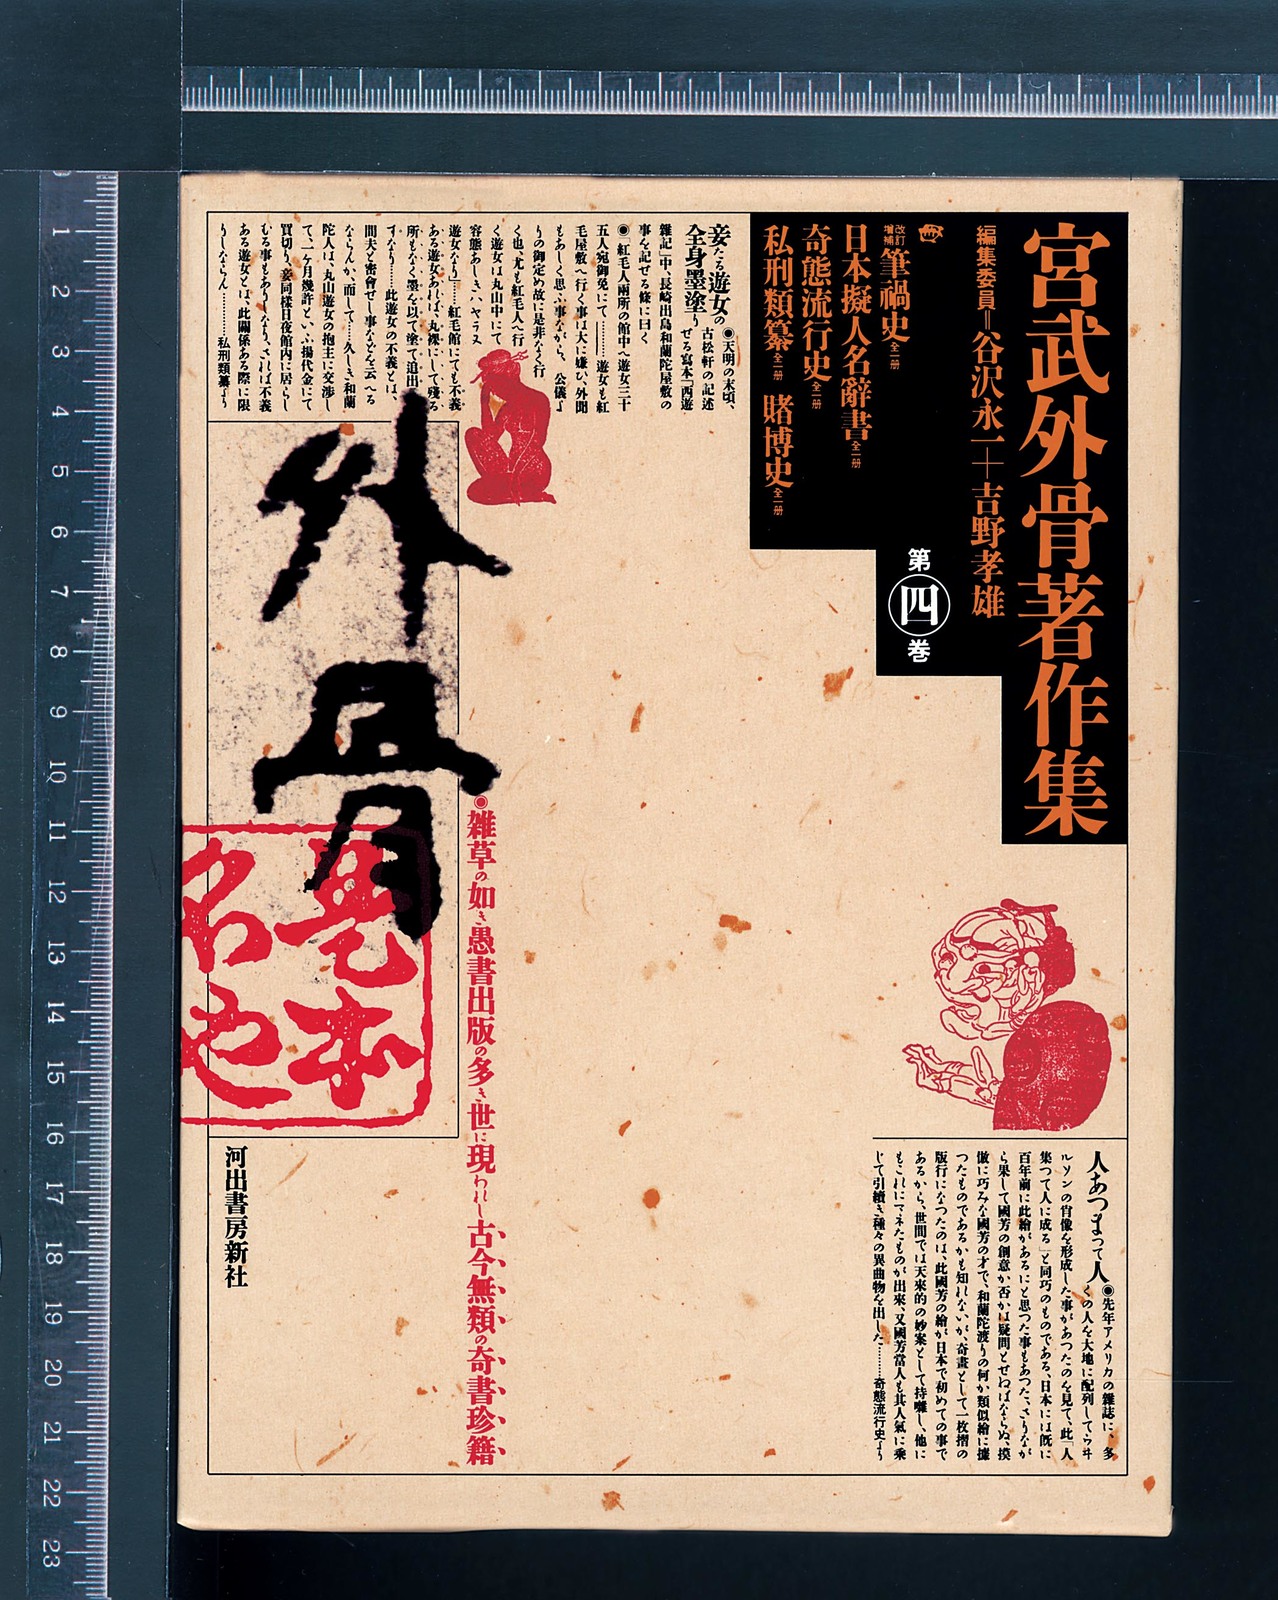 宮武外骨著作集
編集委員＝谷沢永一＋吉野孝雄
第四巻
改訂増補筆禍史全一冊
日本擬人名辭書全一冊
奇態流行史全一冊
私刑類纂全一冊 賭博史全一冊
妾たる遊女の
全身墨塗り
◉天明の末頃、
古松軒の記述
せる寫本「西遊
雜記」中、長崎出島和蘭陀屋敷の
事を記せる條に曰く
◉紅毛人兩所の館中へ遊女三十
五人宛御免にて――遊女も紅
毛屋敷へ行く事は大に嫌ひ、外聞
もあしく思ふ事ながら、公儀よ
りの御定め故に是非なく行
く也、尤も紅毛人へ行
く遊女は丸山中にて
容態あしきハヤラヌ
遊女なり……紅毛館にても不義
ある遊女あれば、丸裸にして殘る
所もなく墨を以て塗て追出
すなり……此遊女の不義とは、
間夫と密會せし事なんを云へる
ならんか、而して……久しき和蘭
陀人は、丸山遊女の抱主に交渉し
て、一ヶ月幾許といふ揚代金にて
買切り、妾同樣日夜館内に居らし
むる事もありしなり、されば不義
ある遊女とは、此關係ある際に限
りしならん…………私刑類纂より
外骨
是本名也
◉雑草の如き愚書出版の多き世に現われし古今無類の奇書珍籍
人あつまつて人
◉先年アメリカの雜誌に、多
くの人を大地に配列してウ井
ルソンの肖像を形成した事があつたのを見て、此「人
集つて人に成る」と同巧のものである、日本には既に
百年前に此繪があるにと思つた事もあつた、さりなが
ら果して國芳の創意か否かは疑問とせねばならぬ、摸
倣に巧みな國芳の才で、和蘭陀渡りの何か類似繪に據
つたものであるかも知れないが、奇畫として一枚摺の
版行になつたのは、此國芳の繪が日本で初めての事で
あるから、世間では天來的の妙案として持囃し、他に
もこれにマネたものが出來、又國芳當人も其人氣に乘
じて引續き種々の異曲物を出した………奇態流行史より
河出書房新社
1
2
3
4
5
6
7
8
9
10
11
12
13
14
15
16
17
18
19
20
21
22
23